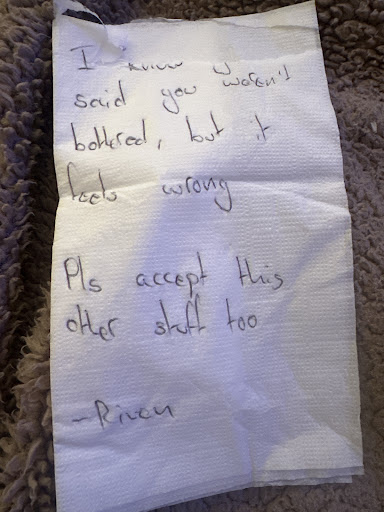 I know y
said you weren't
bothered, but it
feels wrong
Pls accept this
other stuff too
~Riven